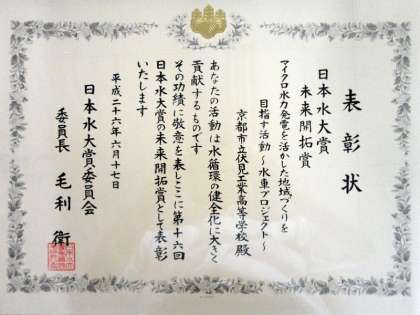 表彰状
日本水大賞
未来開拓賞
マイクロ水力発電を活かした地域づくりを
目指す活動〜水車プロジェクト〜
京都市立伏見工業高等学校 殿
あなたの活動は水循環の健全化に大きく
貢献するものです
その功績に敬意を表しここに第十六回
日本水大賞の未来開拓賞として表彰
いたします
平成二十六年六月十七日
日本水大賞委員会
委員長 毛利 衛